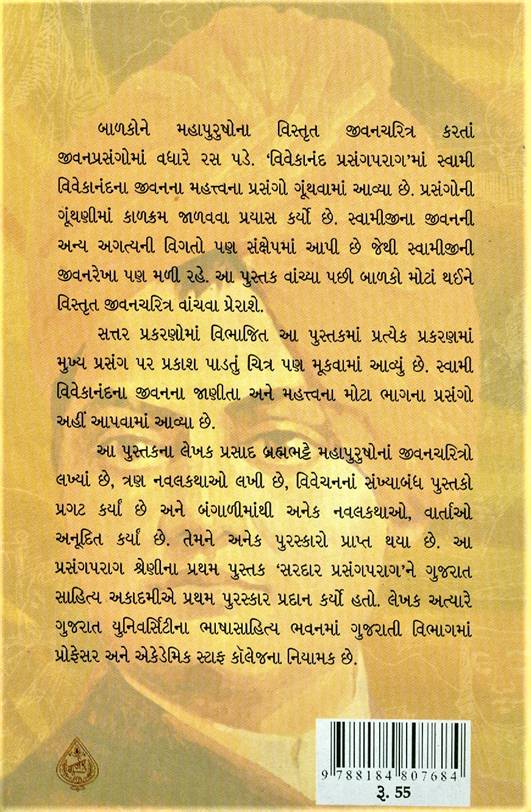 બાળકોને મહાપુરુષોના વિસ્તૃત જીવનચરિત્ર કરતાં
જીવનપ્રસંગોમાં વધારે રસ પડે. ‘વિવેકાનંદ પ્રસંગપરાગ’માં સ્વામી
વિવેકાનંદના જીવનના મહત્ત્વના પ્રસંગો ગૂંથવામાં આવ્યા છે. પ્રસંગોની
ગૂંથણીમાં કાળક્રમ જાળવવા પ્રયાસ કર્યો છે. સ્વામીજીના જીવનની
અન્ય અગત્યની વિગતો પણ સંક્ષેપમાં આપી છે જેથી સ્વામીજીની
જીવનરેખા પણ મળી રહે. આ પુસ્તક વાંચ્યા પછી બાળકો મોટાં થઈને
વિસ્તૃત જીવનચરિત્ર વાંચવા પ્રેરાશે.
સત્તર પ્રકરણોમાં વિભાજિત આ પુસ્તકમાં પ્રત્યેક પ્રકરણમાં
મુખ્ય પ્રસંગ પર પ્રકાશ પાડતું ચિત્ર પણ મૂકવામાં આવ્યું છે. સ્વામી
વિવેકાનંદના જીવનના જાણીતા અને મહત્ત્વના મોટા ભાગના પ્રસંગો
અહીં આપવામાં આવ્યા છે.
આ પુસ્તકના લેખક પ્રસાદ બ્રહ્મભટ્ટે મહાપુરુષોનાં જીવનચરિત્રો
લખ્યાં છે, ત્રણ નવલકથાઓ લખી છે, વિવેચનનાં સંખ્યાબંધ પુસ્તકો
પ્રગટ કર્યાં છે અને બંગાળીમાંથી અનેક નવલકથાઓ, વાર્તાઓ
અનૂદિત કર્યાં છે. તેમને અનેક પુરસ્કારો પ્રાપ્ત થયા છે. આ
પ્રસંગપરાગ શ્રેણીના પ્રથમ પુસ્તક ‘સરદાર પ્રસંગપરાગ’ને ગુજરાત
સાહિત્ય અકાદમીએ પ્રથમ પુરસ્કાર પ્રદાન કર્યો હતો. લેખક અત્યારે
ગુજરાત યુનિવર્સિટીના ભાષાસાહિત્ય ભવનમાં ગુજરાતી વિભાગમાં
પ્રોફેસર અને એકેડેમિક સ્ટાફ કૉલેજના નિયામક છે.
9 788184 807684
રૂ. 55